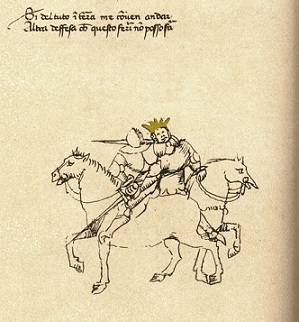 Si del tuto in terra me conven andar
Altra deffesa de questo feri non posso far